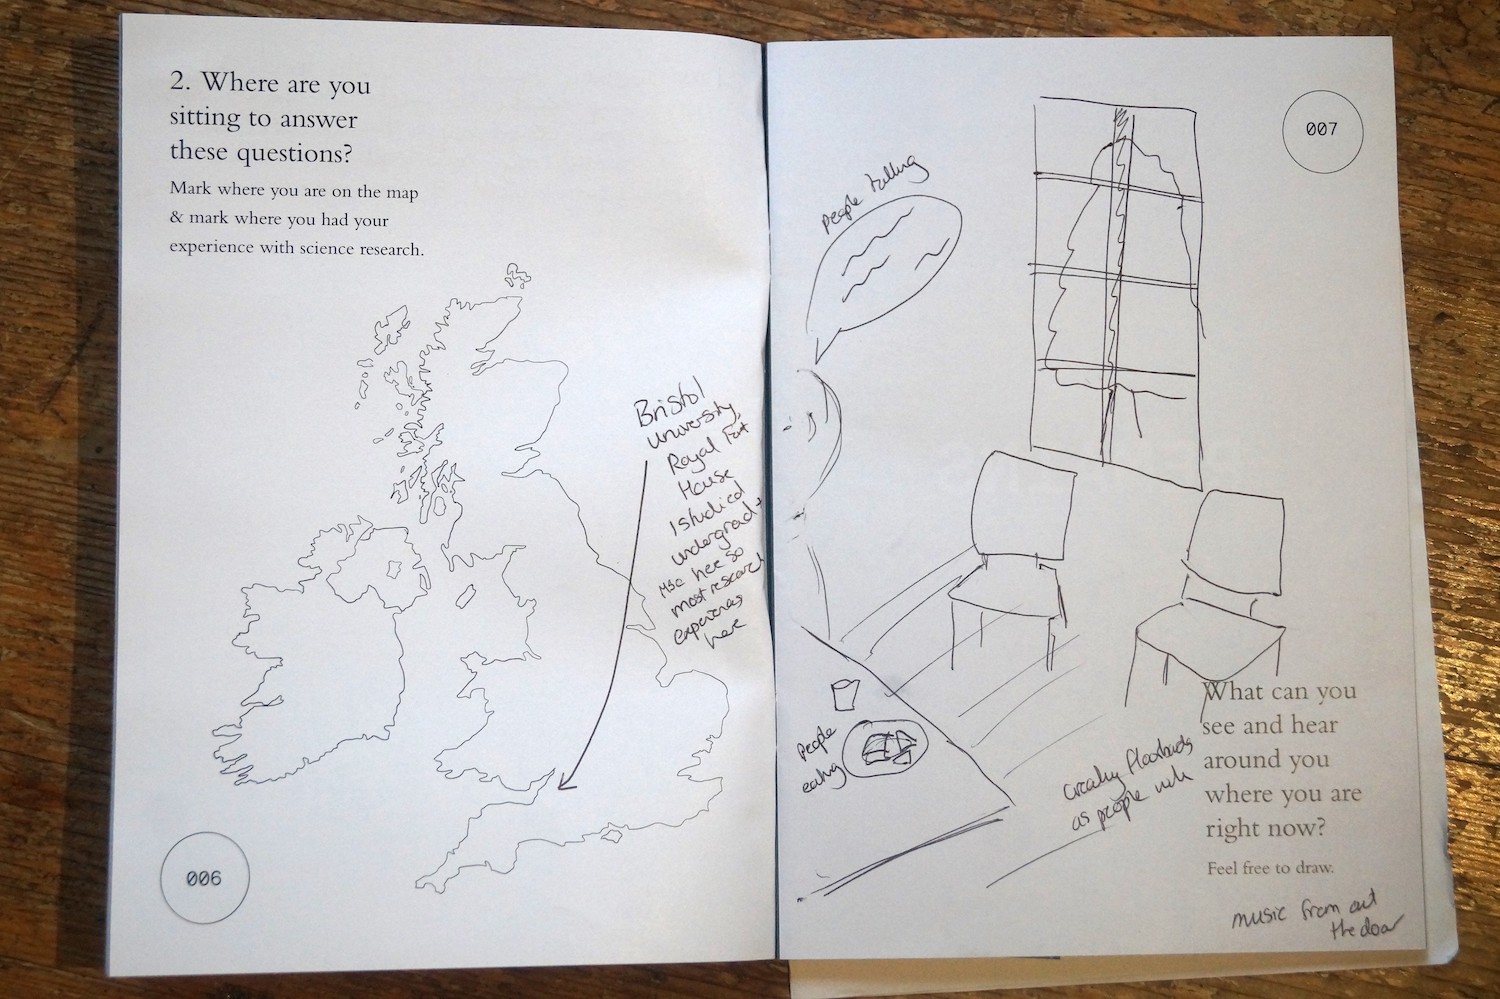 2. Where are you
sitting to answer
these questions?
Mark where you are on the map
& mark where you had your
experience with science research.
Bristol
University,
Royal Fort
House
I studied
undergrad +
MSc here so
most research
experiences
here
006
007
people talking
people
eating
creaky floorboards
as people walk
What can you
see and hear
around you
where you are
right now?
Feel free to draw.
music from out
the door